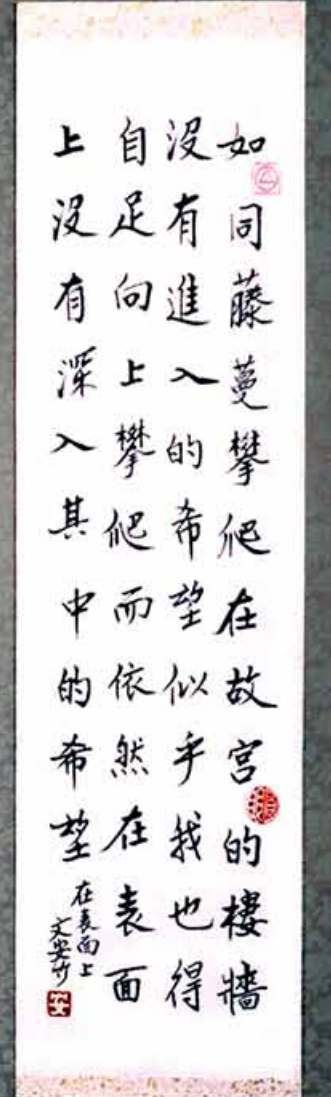 如同藤蔓攀爬在故宮的樓牆
沒有進入的希望似乎我也得
自足向上攀爬而依然在表面
上沒有深入其中的希望
在表面上
文安竹
安